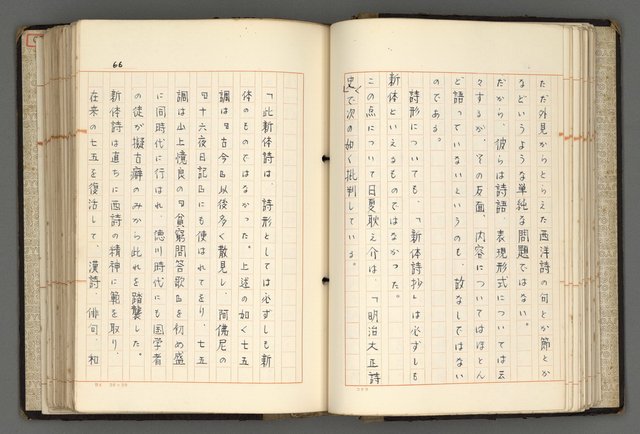 ただ外見からとらえた西洋詩の句とか節とか
などというような単純な問題ではない。
だから、彼らは詩語、表現形式については云
々するが、その反面、内容についてはほとん
ど語っていないというのも、故なしではない
のである。
詩形についても、「新体詩抄」は必ずしも
新体といえるものではなかった。
この点について日夏耿之介は、「明治大正詩
史」で次の如く批判している。
66
「此新体詩は、詩形としては必ずしも新
体のものではなかった。上述の如く七五
調は『古今』以後多く散見し、阿佛尼の
『十六夜日記』にも使はれてをり、七五
調は山上憶良の『貧窮問答歌』を初め盛
に同時代に行はれ、徳川時代にも国学者
の徒が擬古癖のみから此れを踏襲した。
新体詩は直ちに西詩の精神に範を取り、
在来の七五を復活して、漢詩、俳句、和